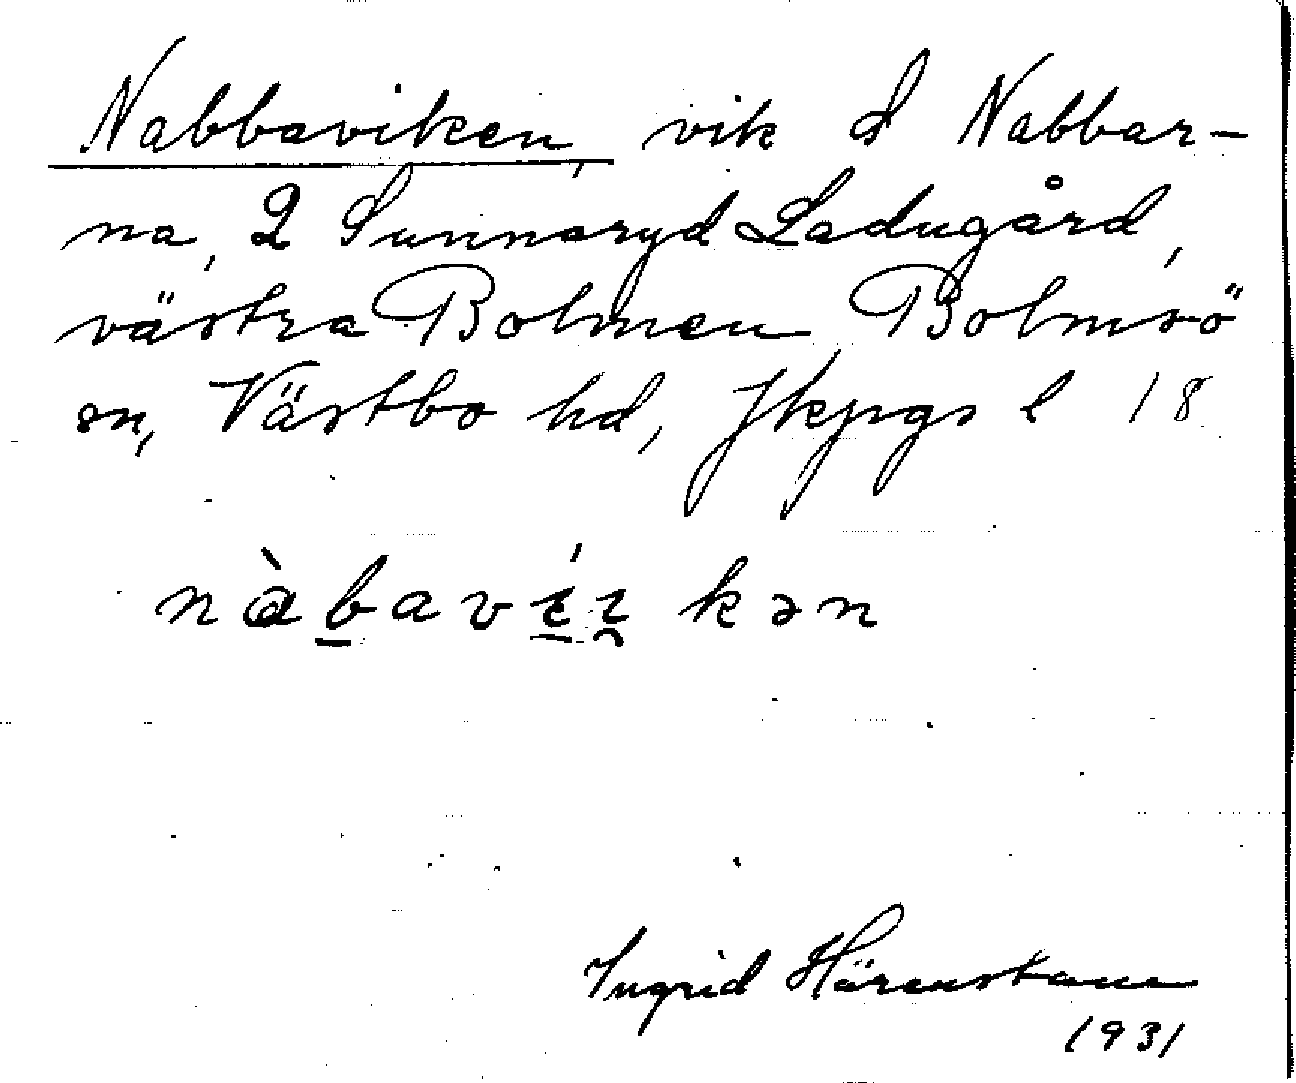 Nabbaviken, vik S Nabbar-
na, 2 Sunnaryd Ladugård,
västra Bolmen, Bolmsö
sn, Västbo hd, Jkpgs l 18
nàbavíi̯kən
Ingrid Härenstam
1931